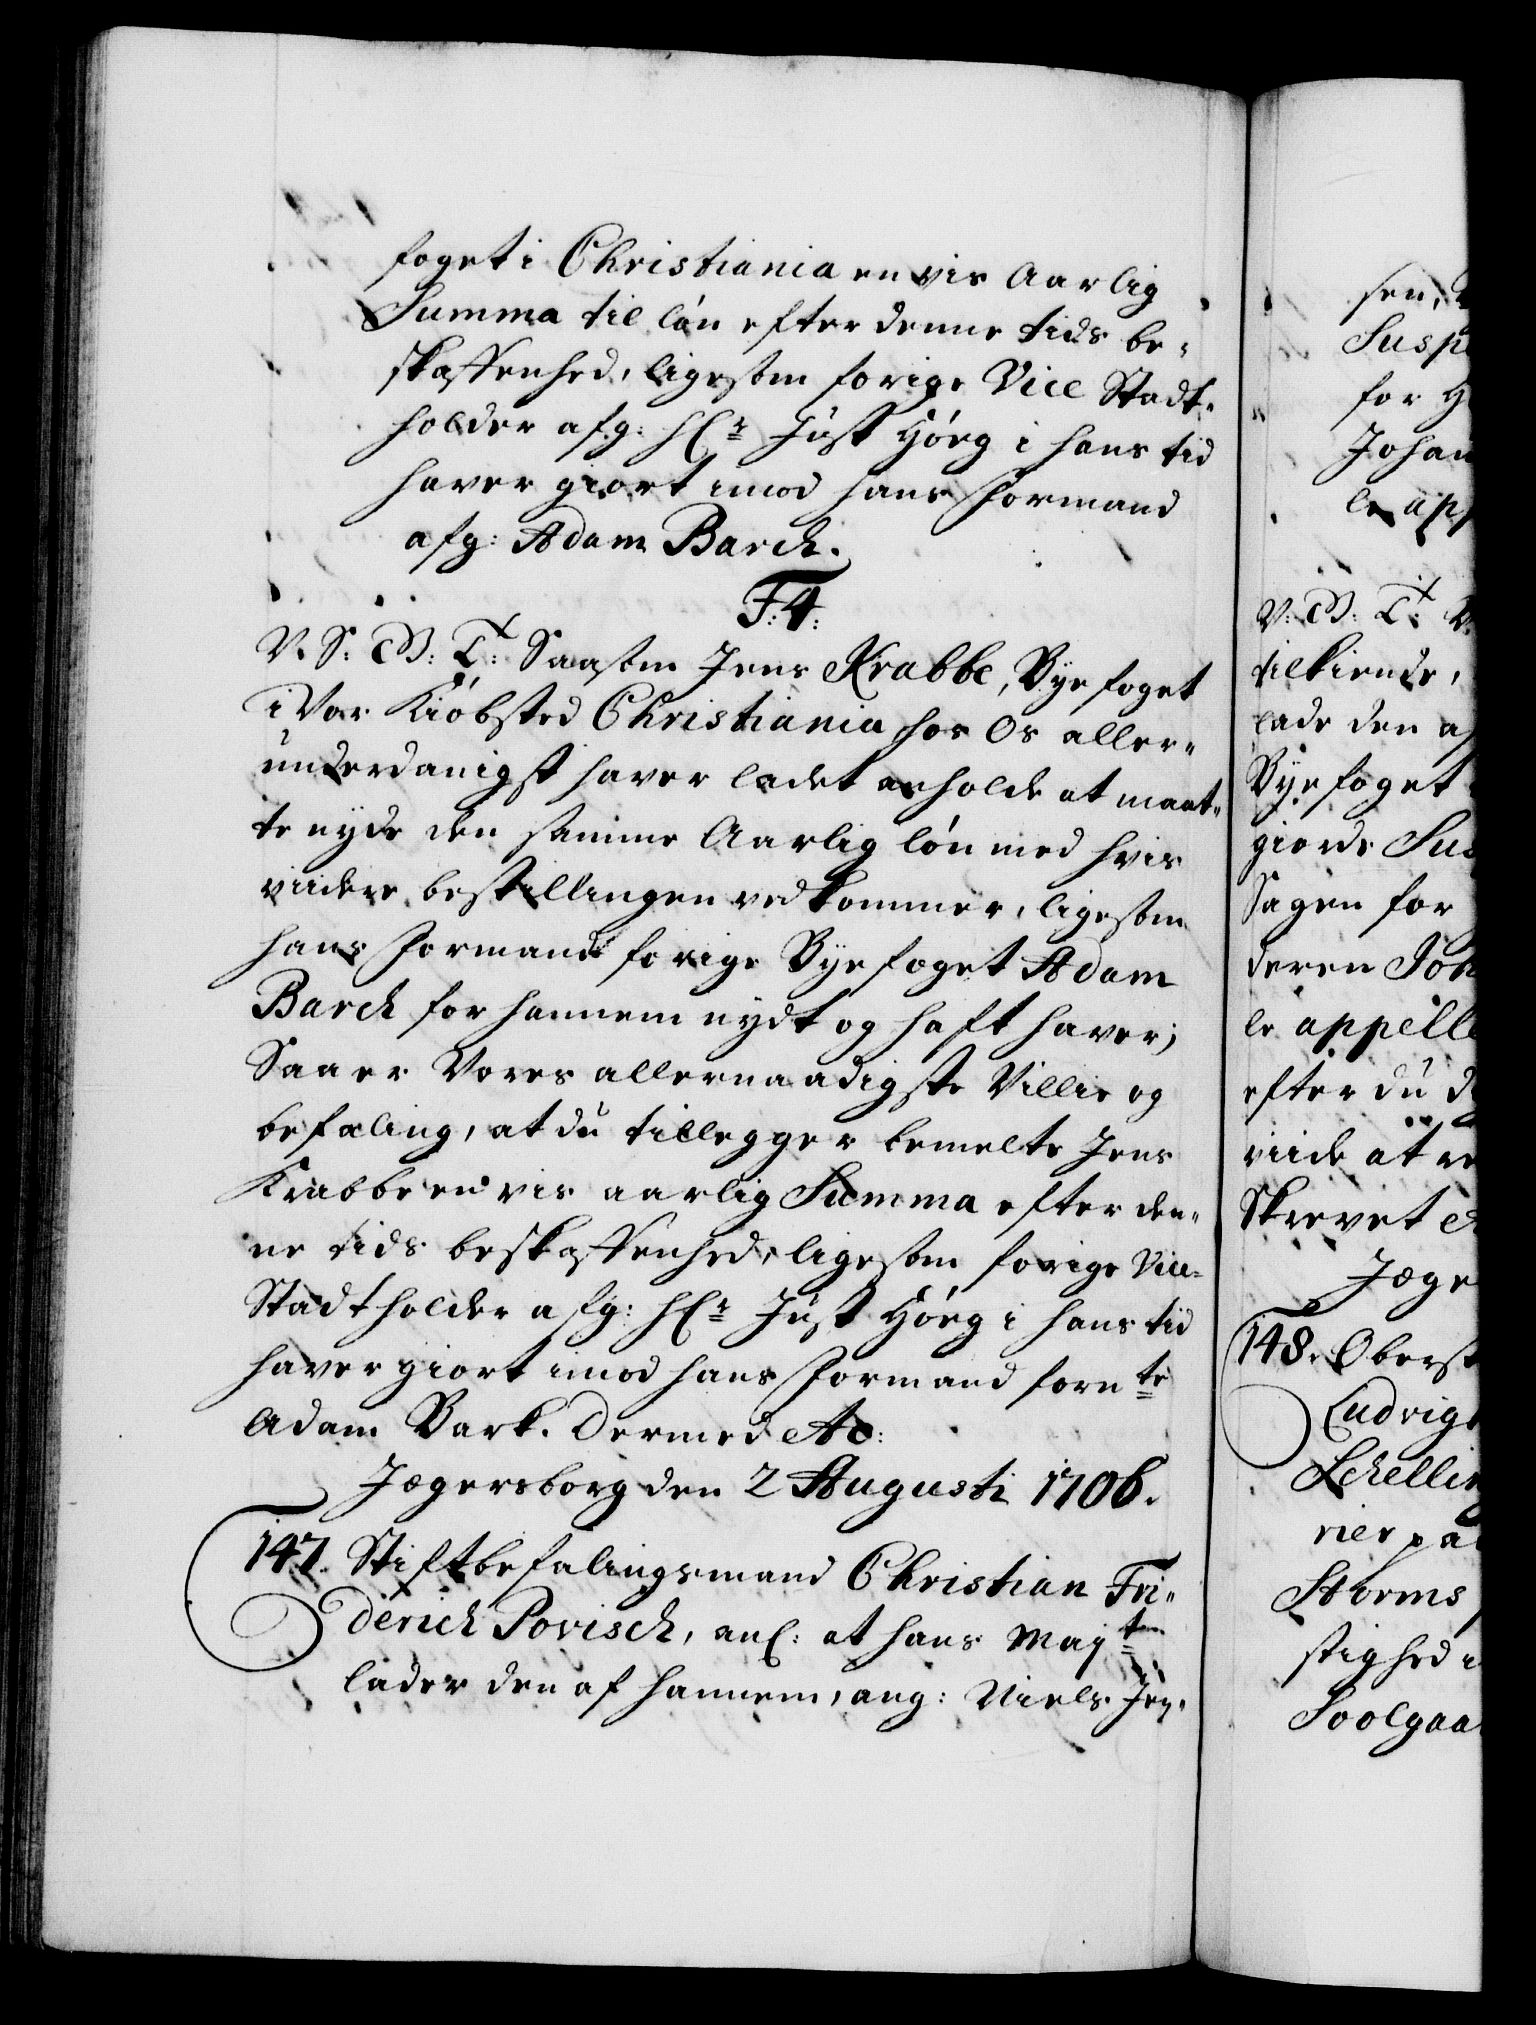 foget i Christiania en vis Aarlig
Summa til lön efter denne tids be-
skaffenhed, ligesom forige Vice Stadt-
holder afg: Hr Just Höeg i hans tid
haver giort imod hans formand
afg: Adam Barch.
F: 4:
V. S: G. B: T: Saasom Jens Krabbe, Byefoget
i Vor Kiöbsted Christiania hos Os aller-
underdanigst haver ladet anholde at maat-
te nyde den samme Aarlig lön med hvis
viidere bestillingen vedkommer, ligesom
hans formand forige Byefoget Adam
Barch for hannem nydt og haft haver;
Saa er Vores allernaadigste Villie og
befaling, at du tillegger bemelte Jens
Krabbe en vis aarlig Summa efter den-
ne tids beskaffenhed, ligesom forige Vice-
Stadtholder afg: Hr Just Höeg i hans tid
haver giort imod hans formand fornte
Adam Bark. Dermed Ac:
Jægersborg den 2 Augusti 1706.
147. Stiftbefalingsmand Christian Fri-
derich Povisch, anl: at hans Majten
lader den af hannem, ang: Niels Jen-
sen,
Susp
for H
Johan
le app
V: B: T:
tilkiende,
lade den af
Byefoget
giorde Sus
Sagen for
deren Joh
le appelle
efter du d
viide at re
Skrevet
Jæge
148. Oberst
Ludvig
Schellin
rier paa
Storms
stighed i
Soolgaa